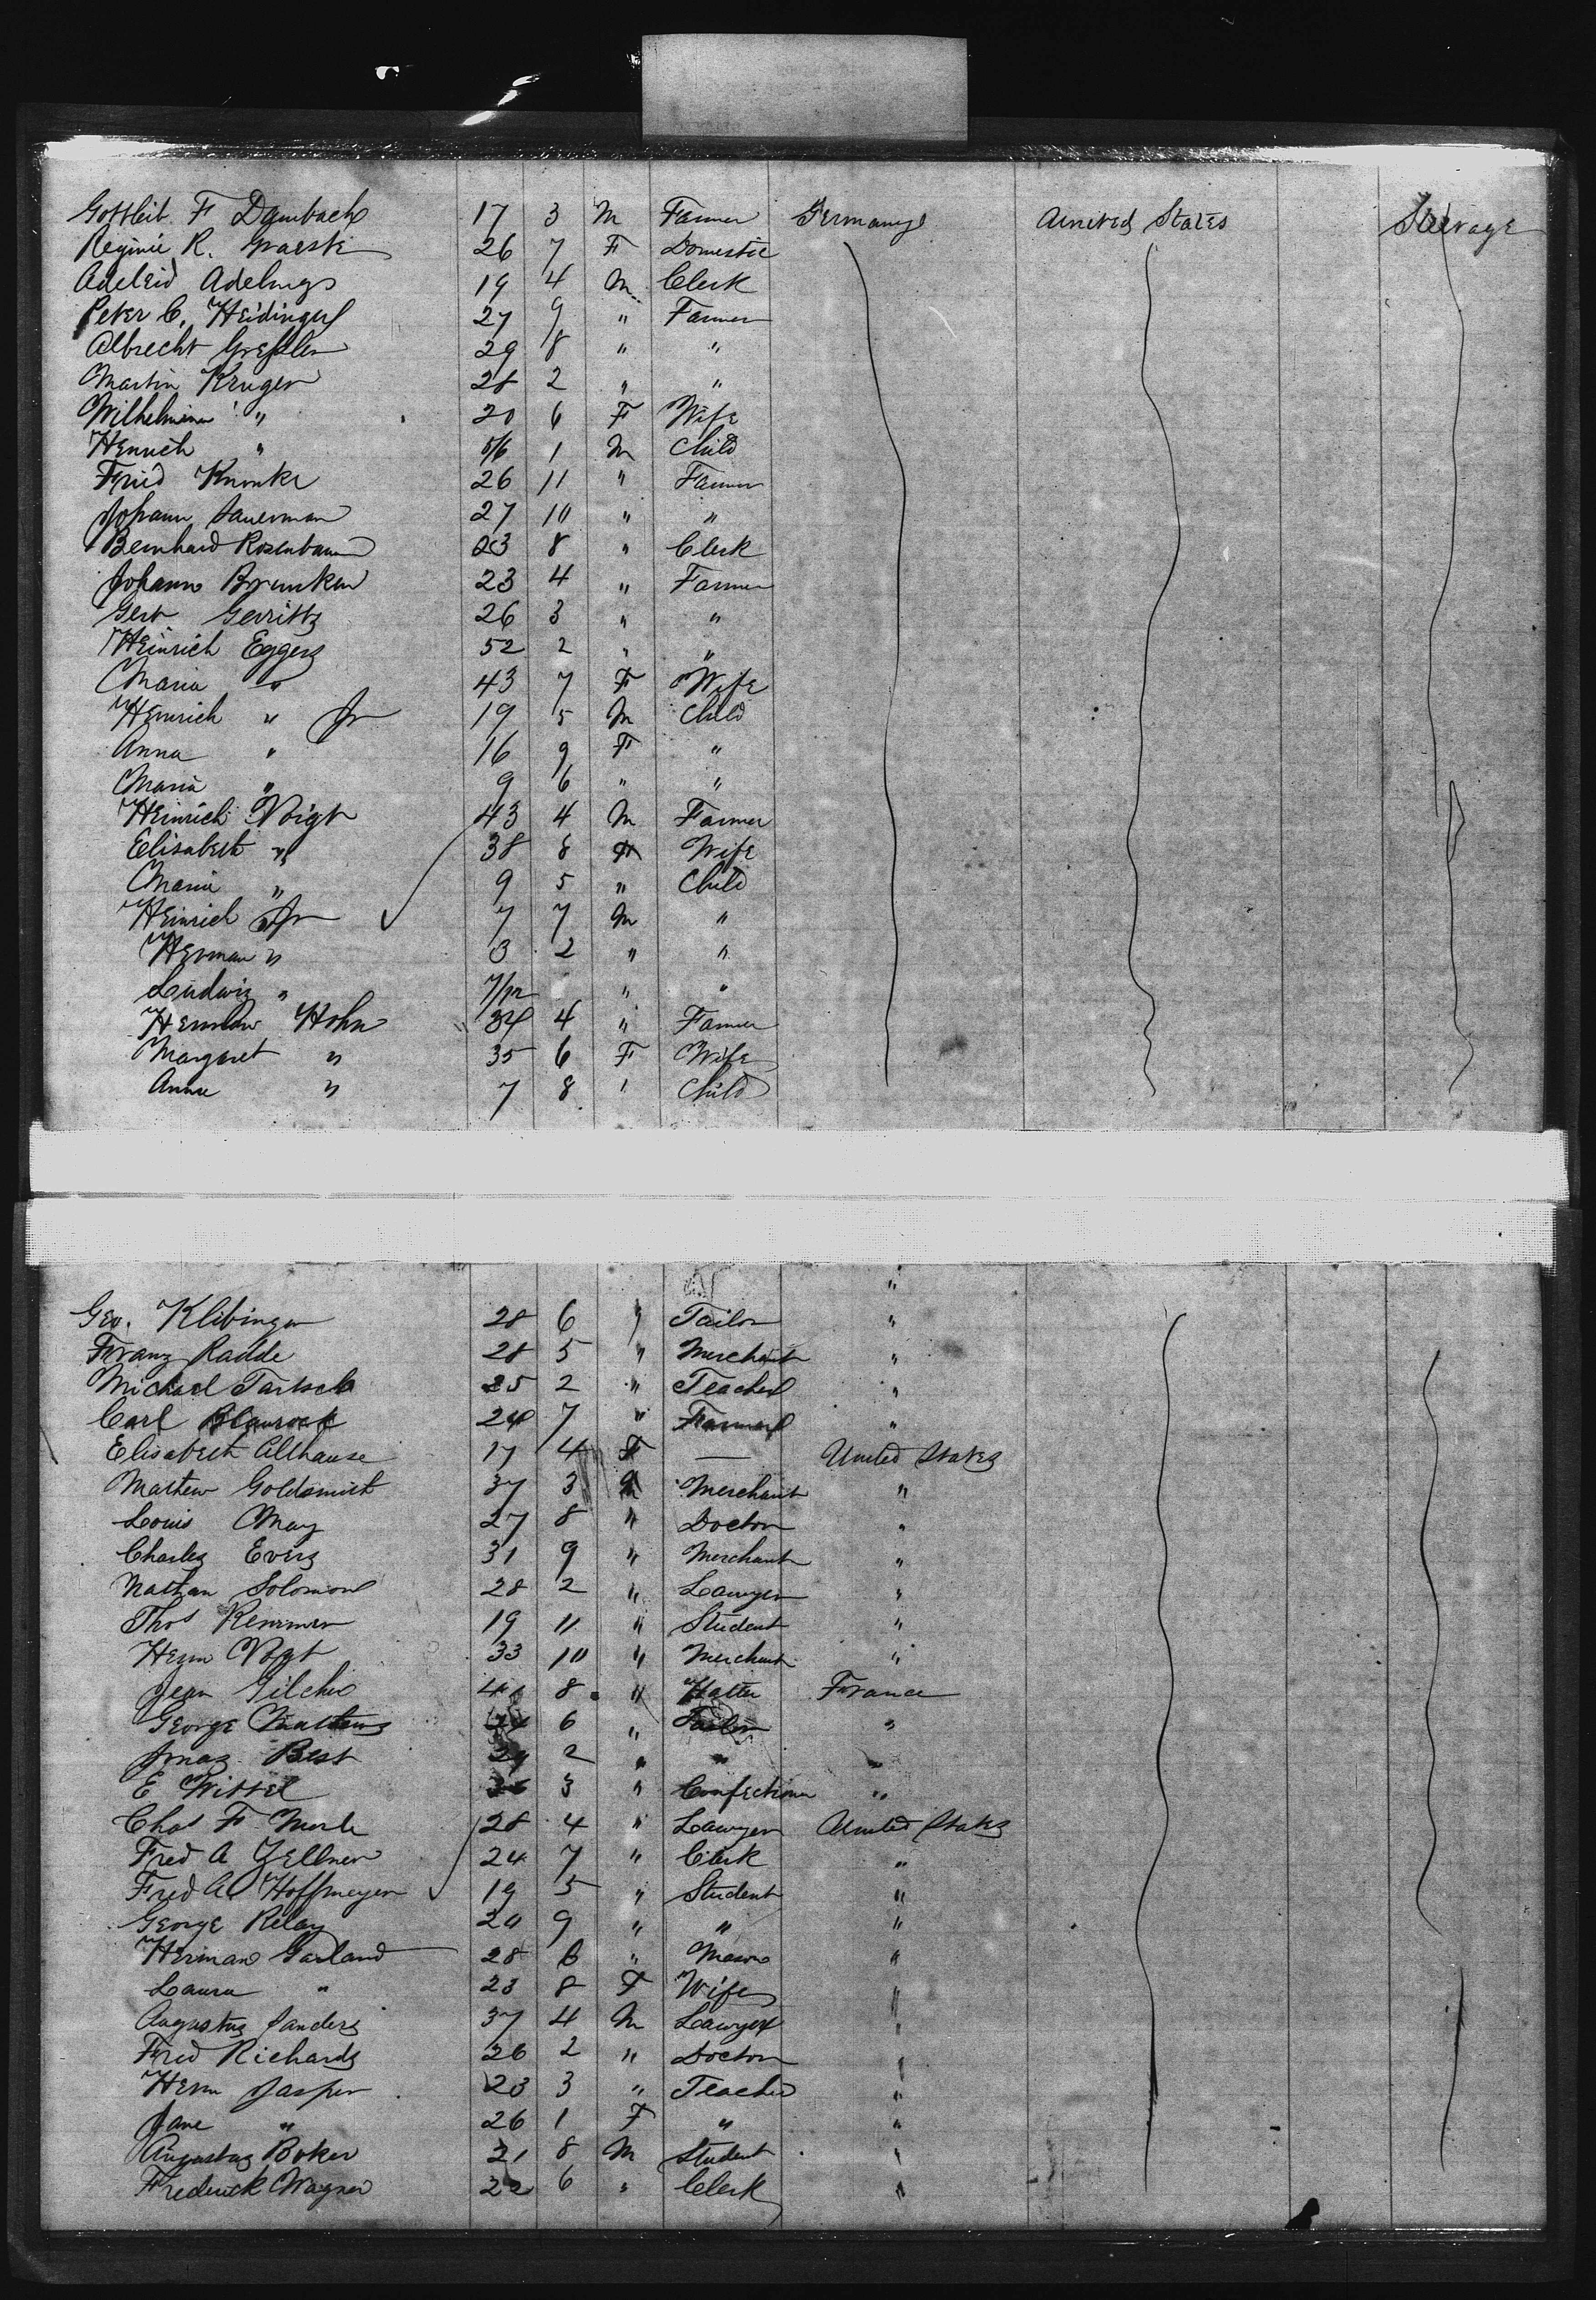 Gottleib F Dambach 17 3 M Farmer Germany United States Steerage
Reginie R. 26 7 F Domestic
Adeleid 19 4 M Clerk
Peter C. Heidinger 27 9 " Farmer
Albrecht Gressler 29 8 " "
Martin Kruger 28 2 " "
Wilhelmina " 20 6 F Wife
Henrich " 5/6 1 M Child
Fried 26 11 " Farmer
Johann Sauerman 27 10 " "
Bernhard Rosenbaum 23 8 " Clerk
Johann Brunken 23 4 " Farmer
Gert Gerritts 26 3 " "
Heinrich Eggers 52 2 " "
Maria " 43 7 F Wife
Heinrich " Jr 19 5 M Child
Anna " 16 9 F "
Maria " 9 6 " "
Heinrich Voigt 43 4 M Farmer
Elisabeth " 38 8 F Wife
Maria " 9 5 " Child
Heinrich " Jr 7 7 M "
Herman " 3 2 " "
Ludwig " 7/12 " "
Hohn 34 4 " Farmer
Margaret " 35 6 F Wife
Anna " 7 8 " Child
"
Geo. Klibinger 28 6 " Tailor "
Franz Radde 28 5 " Merchant "
Michael Tartsch 25 2 " Teacher "
Carl Blaurock 24 7 " Farmer "
Elisabeth Althause 17 4 F — United States
Mathew Goldsmith 37 3 M Merchant "
Louis May 27 8 " Doctor "
Charles Evers 31 9 " Merchant "
Nathan Solomon 28 2 " Lawyer "
Thos 19 11 " Student "
Herm Vogt 33 10 " Merchant "
Jean Gilcher 8 " Hatter France
George Mathews 6 " Tailor "
Best 2 " " "
E Wittel 3 " Confectioner "
Chas F. Merk 28 4 " Lawyer United States
Fred A Zellner 24 7 " Clerk "
Fred A Hoffmeyer 19 5 " Student "
George Relay 24 9 " " "
Herman Garland 28 6 " Mason "
Laura " 23 8 F Wife "
Augustus Sanders 37 4 M Lawyer "
Fred Richards 26 2 " Doctor "
Herm Jasper 23 3 " Teacher "
Jane " 26 1 F " "
Augustus Boker 21 8 M Student "
Frederick Wagner 22 6 " Clerk "